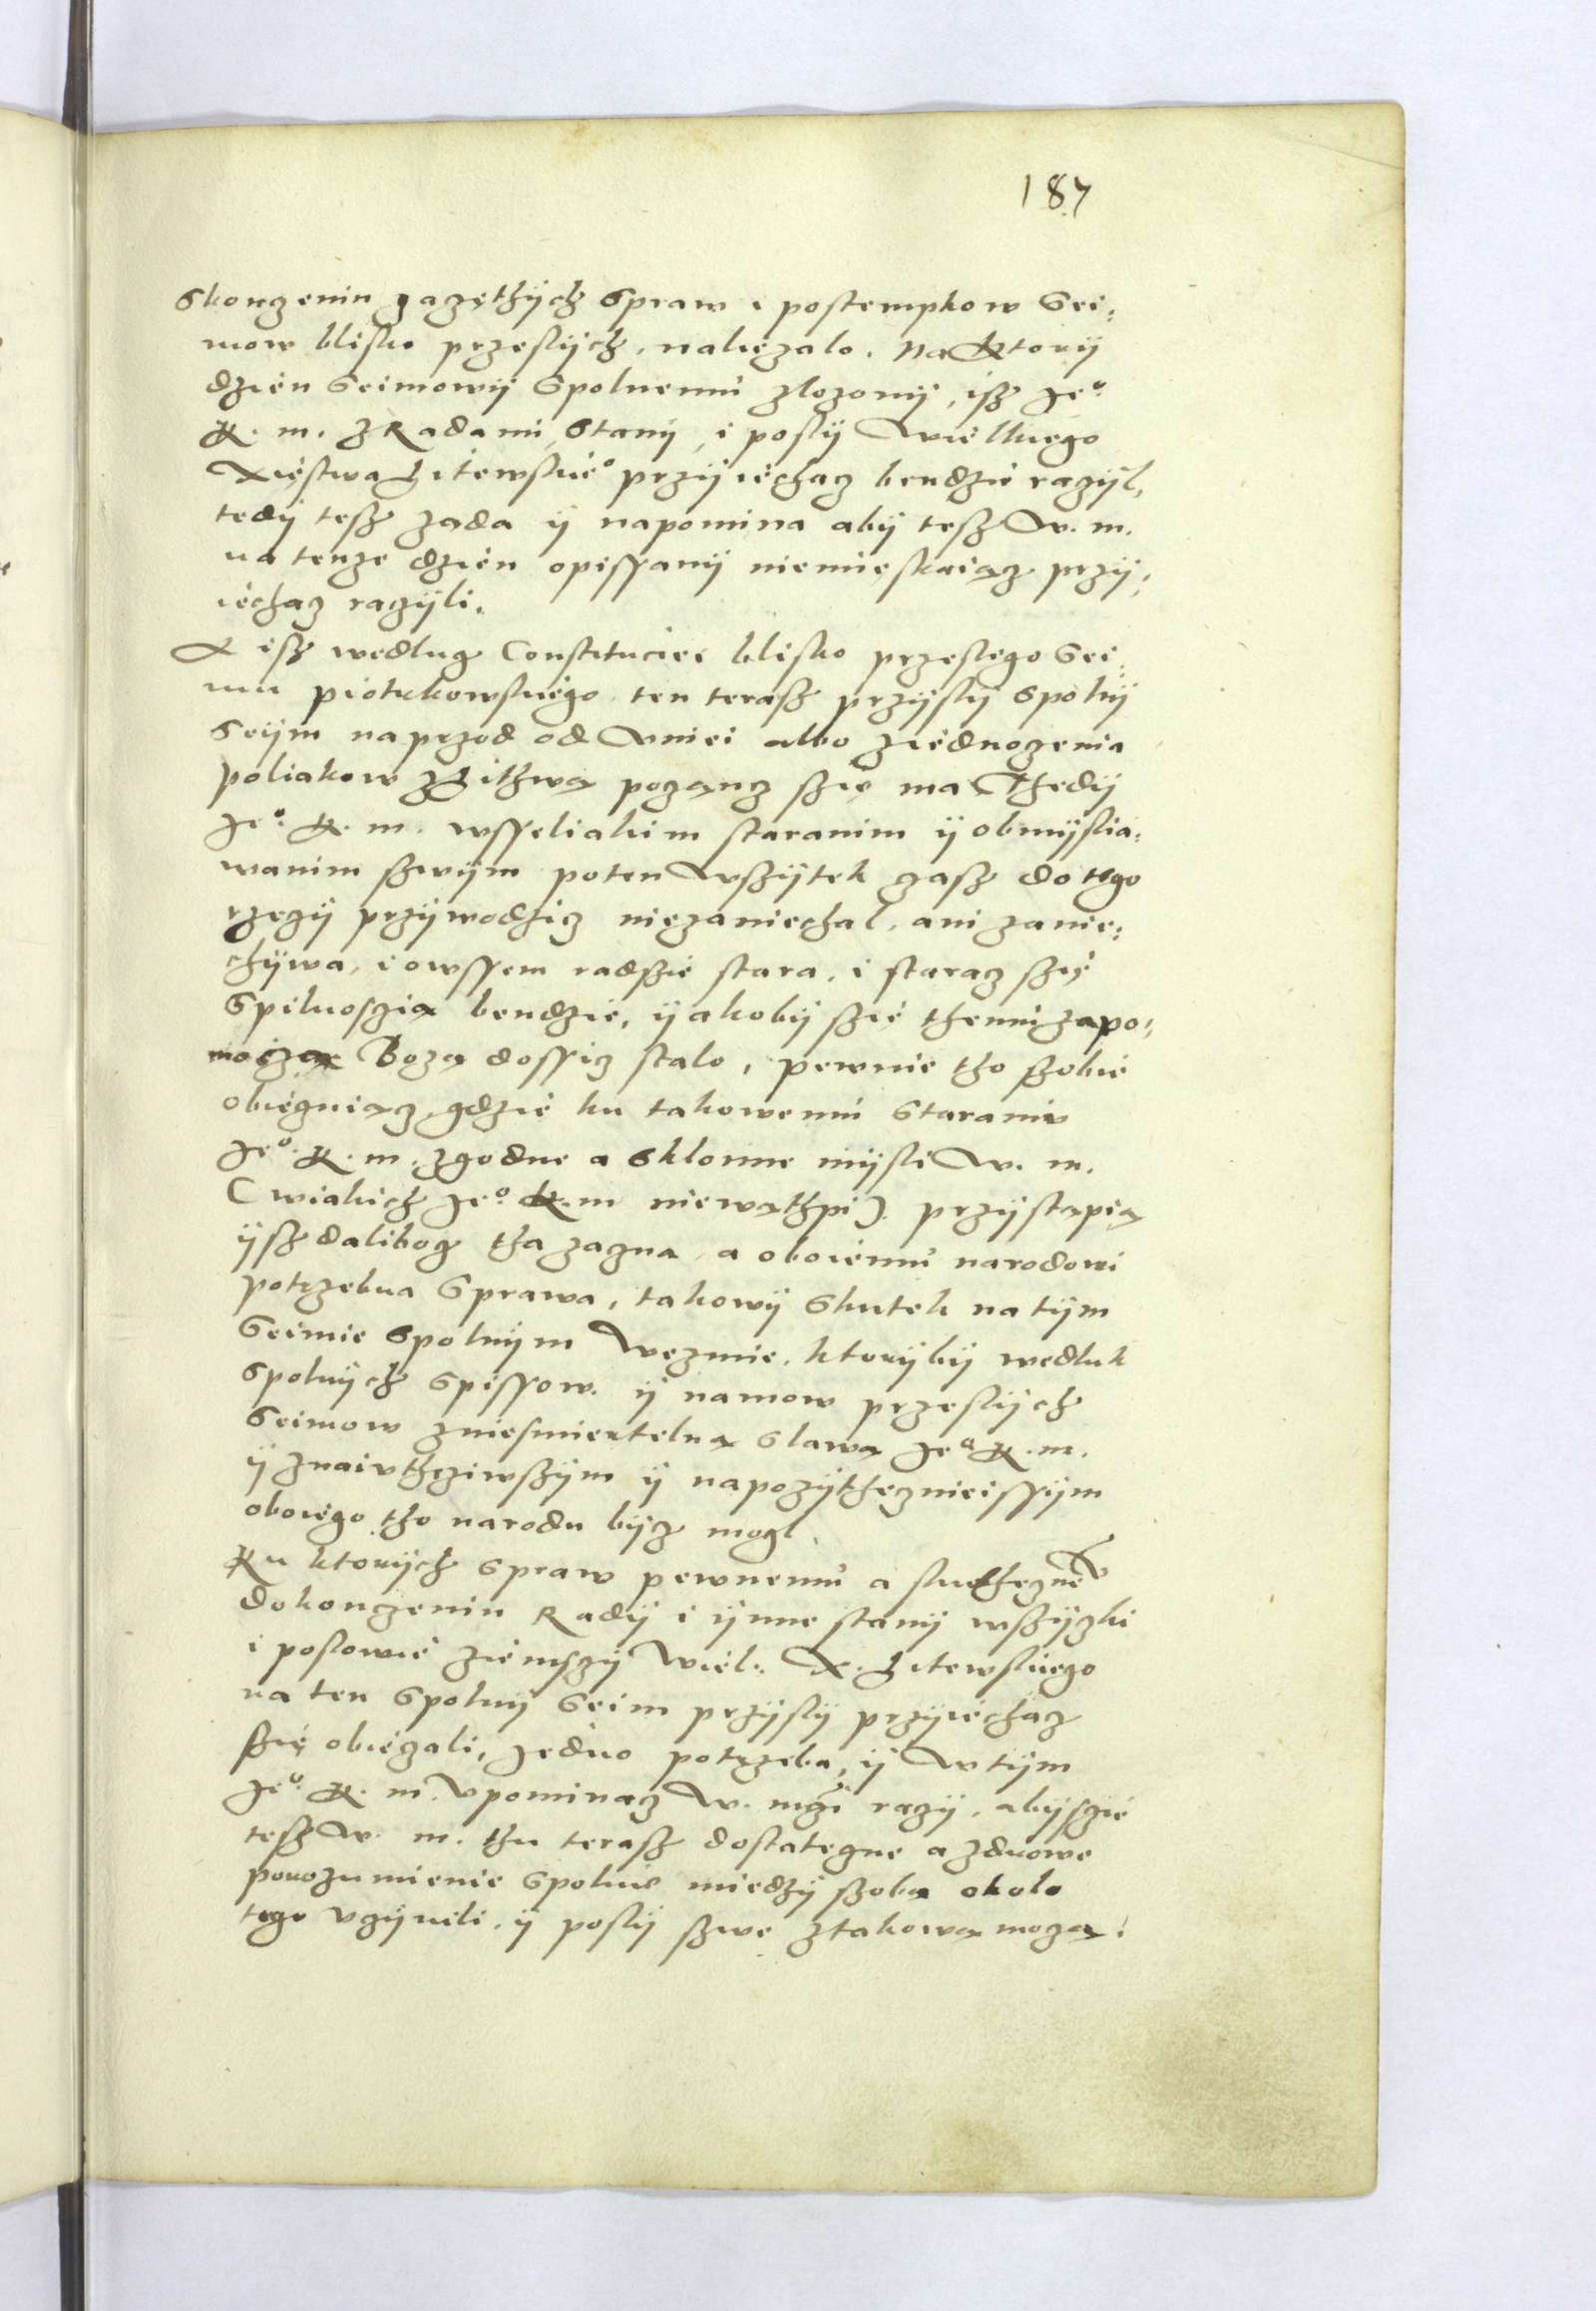 187
skonczeniu zaczęthÿch spraw i postempkow Sei:
mow blisko przeslÿch, nalieżalo. Na ktorÿ
dzien Seimowÿ Spolnemu zlozonÿ, isz Jeº
K. m. z Radami, Stanÿ, i poslÿ Wielkiego
Xięstwa Litewskieº przÿiechacz bendzie raczÿl,
tedÿ tesz zada ÿ napomina abÿ tesz W. m.
na tenze dzien opissanÿ niemieskaiącz przÿ:
iechacz raczÿli.
A isz wedlug Constituciei blisko przeslego Sei:
mu piotrkowskiego ten terasz przÿslÿ spolnÿ
Seÿm naprzod od Vniei albo ziednoczenia
poliakow z Lithwą poczancz szię ma Thedÿ
Jeº K. m. wsseliakim staranim ÿ obmÿslia:
wanim szwÿm poten wszÿtek czasz do tego
rzeczÿ przÿwodzicz niezaniechal, ani zanie:
chÿwa, i owssem radszie stara, i staracz szię
Spilnosczią bendzie, ÿakobÿ szie themu zapo:
moczą Bożą dossicz stalo, pewnie tho szobie
obiecuiącz, gdzie ku takowemu Staraniu
Jeº K. m. zgodne a sklonne mÿsli W. m.
(wiakich Jeº K. m niewąthpi) przÿstąpią
ÿsz dalibog tha zacna a oboiemu narodowi
potrzebna Sprawa, takowÿ Skutek na tÿm
Seimie spolnÿm Wezmie, ktorÿbÿ wedluk
spolnÿch Spissow ÿ namow przeslÿch
Seimow zniesmiertelną slawą Jeº K. m.
ÿ znaiuthcziwszÿm ÿ napozÿthecznieissÿm
oboiego tho narodu bÿcz mogl.
Ku ktorÿch spraw pewnemu a skuthecznemu
dokonczeniu Radÿ i ÿnne stanÿ wszÿczki
i poslowie ziemsczÿ Wiel: X. Litewskiego
na ten Spolnÿ Seim przÿslÿ przÿiechacz
szię obieczali, Jedno potrzeba, ÿ w tÿm
Jeº K. m. Vpominacz W. mczi raczÿ, abÿsczie
tesz W. m. thu terasz dostateczne a zdrowe
porozumienie spolnie miedzÿ szobą około
tego vczÿnili, ÿ poslÿ szwe ztakową moczą.